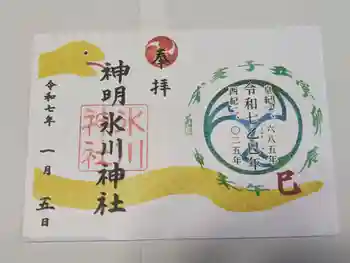 奉拝
神明氷川神社
氷川
神社
令和七年 一月 五日
皇紀二六八五年
令和七乙巳年
西紀二〇二五年
子丑寅卯辰
巳
午未